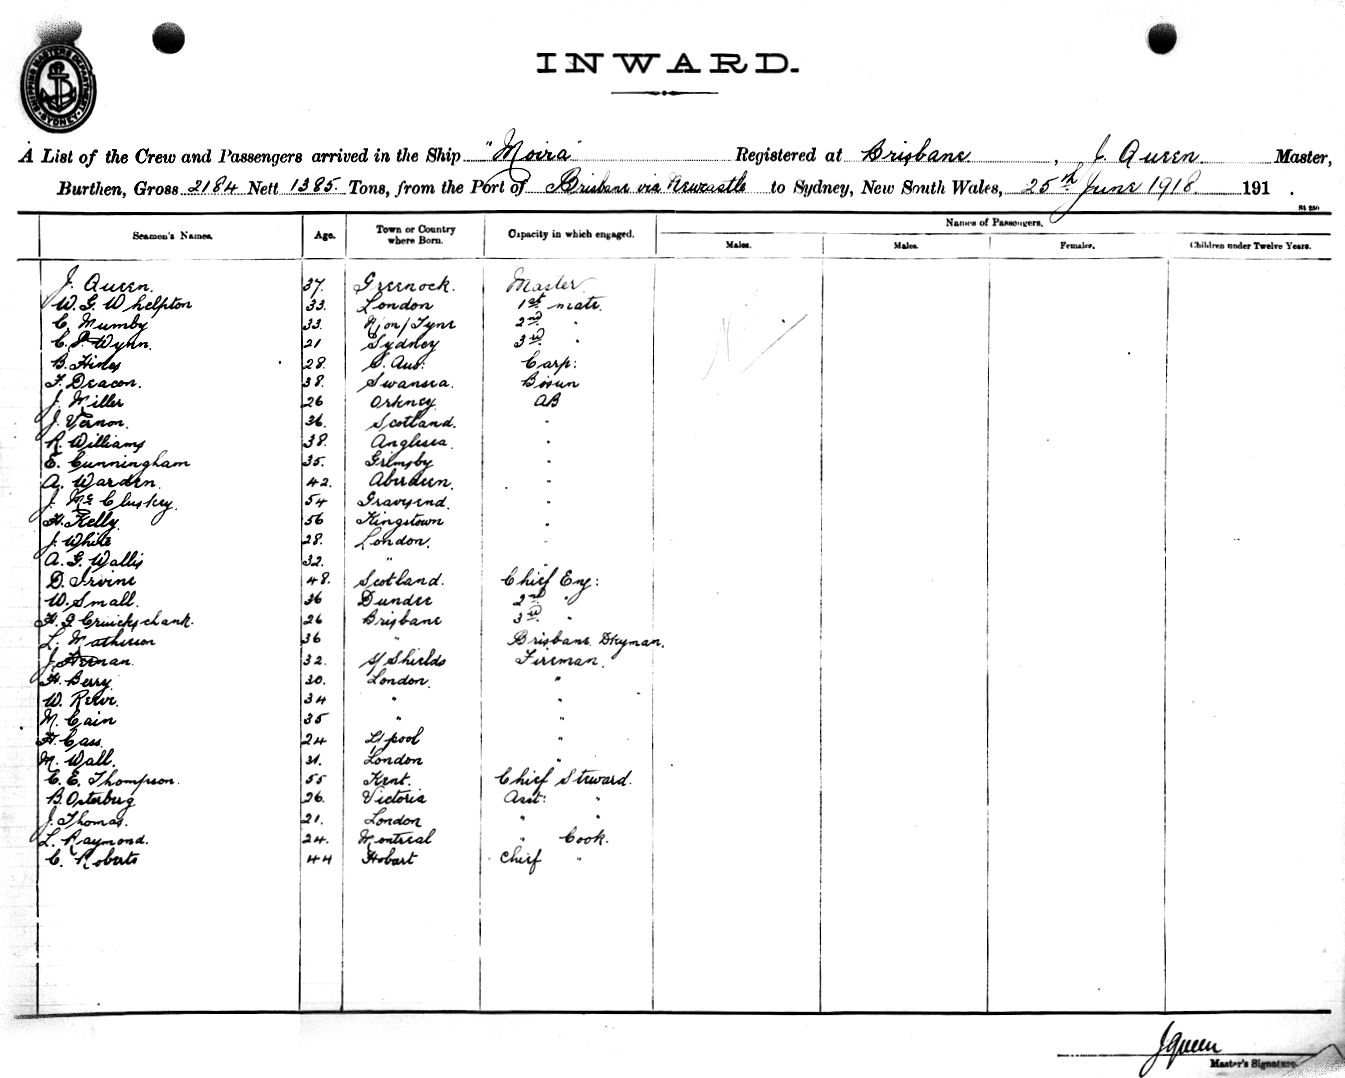 SHIPPING MASTER'S DEPARTMENT SYDNEY
INWARD.
A List of the Crew and Passengers arrived in the Ship "Moira" Registered at Brisbane, J. Queen Master,
Burthen, Gross 2184 Nett 1385 Tons, from the Port of Brisbane via Newcastle to Sydney, New South Wales, 25th June 1918. 191 .
Seamen's Names. Age. Town or Country where Born. Capacity in which engaged. Names of Passengers.
Males. Males. Females. Children under Twelve Years.
J. Queen. 37. Greenock. Master
W. G. Whelpton 33. London 1st mate.
C. Mumby 33. N/on/Tyne 2nd "
C. P. Wynn. 21 Sydney 3rd "
B. Hines 28. S. Aus: Carp:
F. Deacon. 38. Swansea. Bosun
J. Miller 26 Orkney AB
J. Vernon. 36. Scotland. "
R. Williams 38. Anglesea "
E. Cunningham 35. Grimsby "
A. Warden. 42. Aberdeen. "
J. McCluskey. 54 Gravesend. "
H. Kelly. 56 Kingstown "
J. White 28. London. "
A. G. Wallis 32. " "
D. Irvine 48. Scotland. Chief Eng:
W. Small. 36 Dundee 2nd "
H. J. Cruickschank. 26 Brisbane 3rd "
L. Matheson 36 " Brisbane Dkyman.
J. Heenan. 32. S/Shields Fireman.
H. Berry 30. London. "
W. Reeve. 34 " "
M. Cain 35 " "
H. Cass 24 L'pool "
M. Wall. 31. London "
C. E. Thompson. 55 Kent. Chief Steward.
B. Osterberg 26. Victoria Asst: "
J. Thomas. 21. London " "
L. Raymond. 24. Montreal " Cook.
C. Roberts 44 Hobart Chief "
J Queen
Master's Signature.